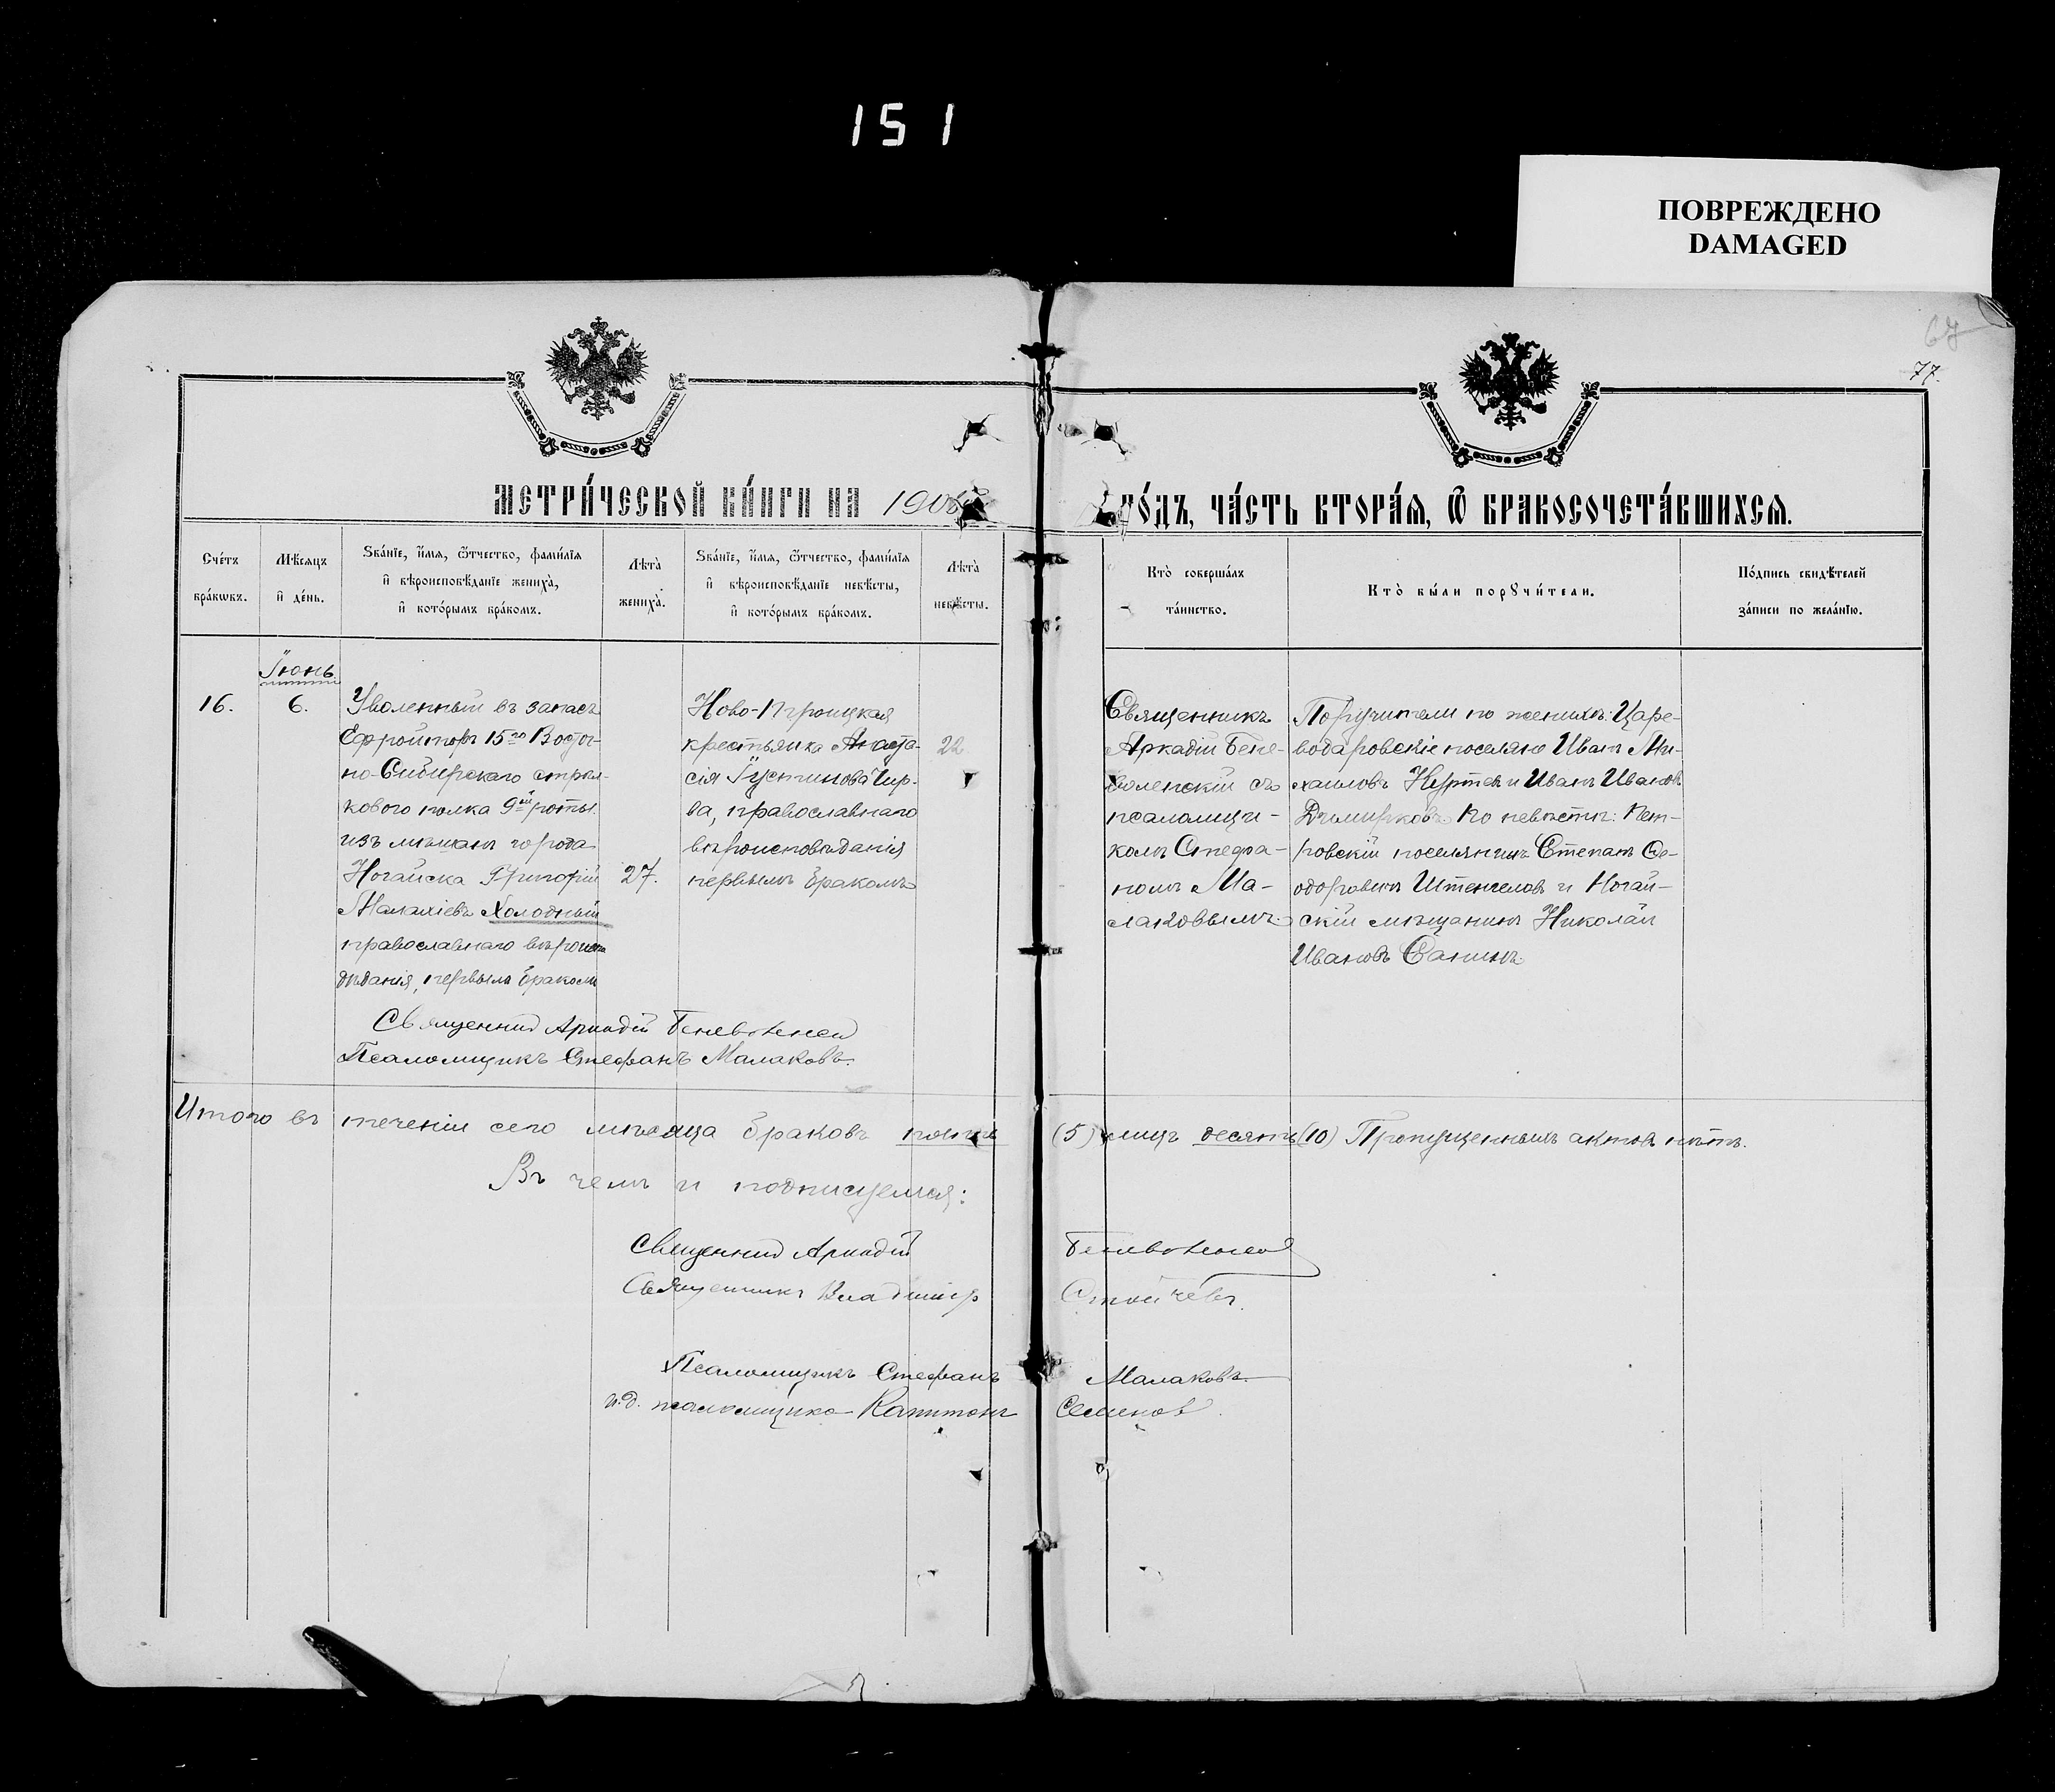 151
ПОВРЕЖДЕНО
DAMAGED
77.
МЕТРИ́ЧЕСКОЙ КНИ́ГИ НА 190
ГО́ДЪ, ЧА́СТЬ ВТОРА́Ѧ, Ѽ БРАКОСОЧЕТА́ВШИХСѦ.
Сче́тъ бра́кѡвъ.
Мѣ́сяцъ и҆ де́нь.
Ѕва́нїе, и҆́мѧ, ѻ҆́тчество, фами́лїѧ и҆ вѣроисповѣ́данїе жениха̀, и҆ кото́рымъ бра́комъ.
Лѣта̀ жениха̀.
Ѕва́нїе, и҆́мѧ, ѻ҆́тчество, фами́лїѧ и҆ вѣроисповѣ́данїе невѣ́сты, и҆ кото́рымъ бра́комъ.
Лѣта̀ невѣ́сты.
Кто̀ соверша́лъ та́инство.
Кто̀ бы́ли порꙋчи́тели.
По́дпись свидѣ́телей за́писи по жела́нїю.
Іюнь
16.
6.
Уволенный въ запасъ
Ефрейторъ 15го Восточ-
но-Сибирскаго стрѣл-
коваго полка 9й роты
изъ мѣщанъ города
Ногайска Григорій
Малахіевъ Холодный
православнаго вѣроиспо
вѣданія, первымъ бракомъ
27.
Ново-Троицкая
крестьянка Анаста-
сія Іустинова Чир-
ва, православнаго
вѣроисповѣданія
первымъ бракомъ
22
Священникъ
Аркадій Бене-
воленскій съ
псаломщи-
комъ Стефа-
номъ Ма-
лаковымъ.
Поручители по женихѣ: Царе-
водаровскіе поселяне Иванъ Ми-
хаиловъ Куртевъ и Иванъ Ивановъ
Димирковъ. По невѣстѣ: Пет-
ровскій поселянинъ Степанъ Ѳе-
одоровичъ Штенгеловъ и Ногай-
скій мѣщанинъ Николай
Ивановъ Санинъ.
Священникъ Аркадій Беневоленскій
Псаломщикъ Стефанъ Малаковъ.
Итого въ теченіи сего мѣсяца браковъ пять (5) лицъ десять (10) Пропущенныхъ актовъ нѣтъ.
Въ чемъ и подписуемся:
Священникъ Аркадій Беневоленскій
Священникъ Владиміръ Стойчевъ.
Псаломщикъ Стефанъ Малаковъ
и.д. псаломщика Капитонъ Семеновъ.